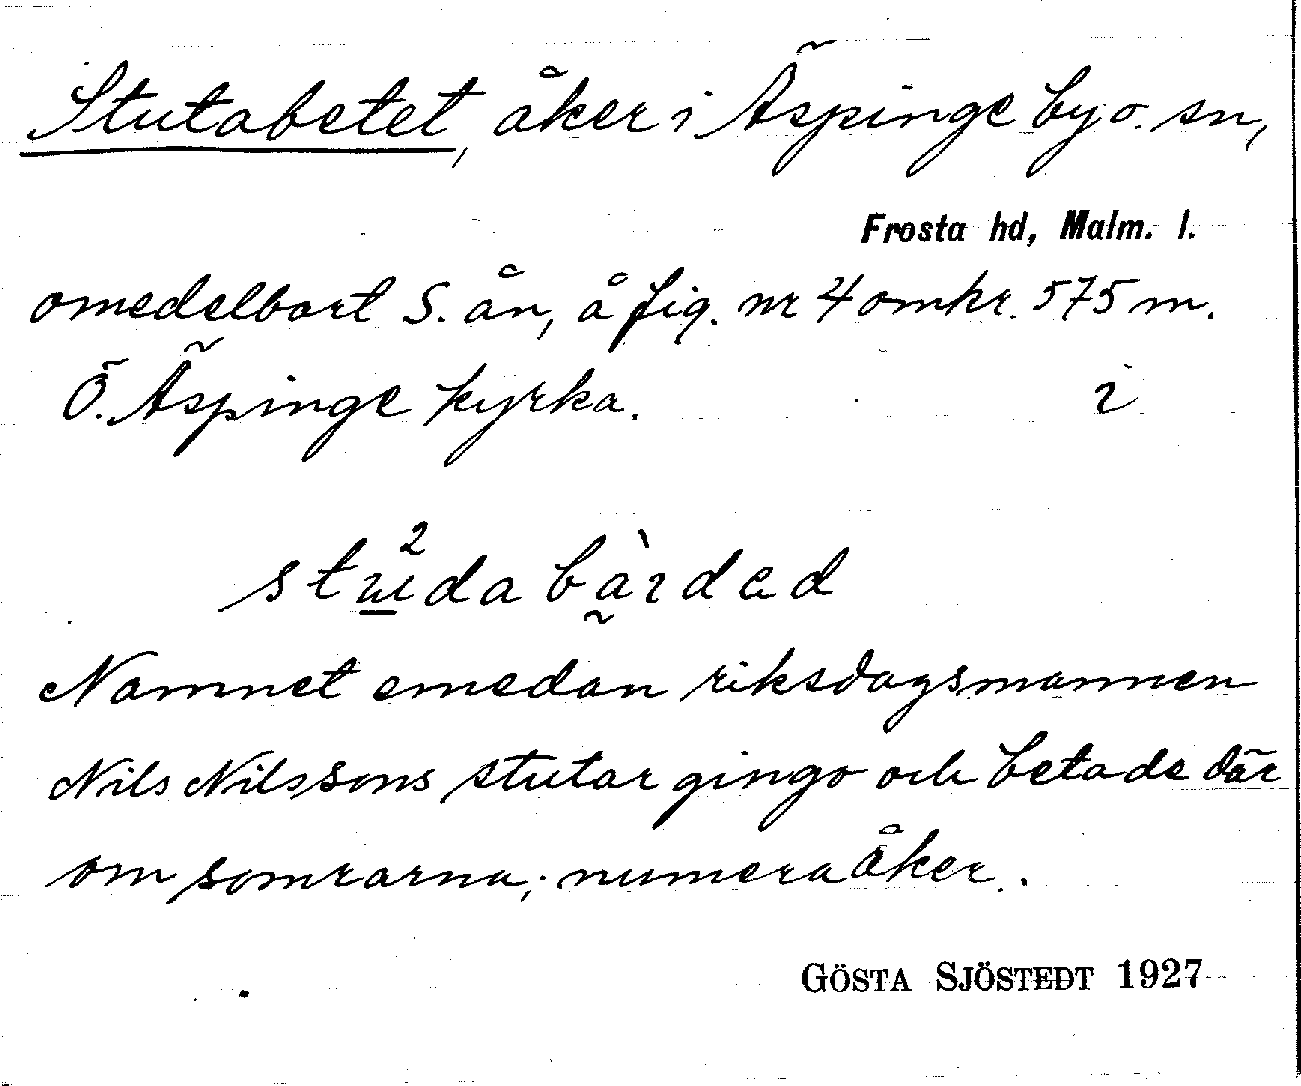 Stutabetet, åker i Äspinge by o. sn,
Frosta hd, Malm. l.
omedelbart S. ån, å fig. nr 4 omkr. 575 m.
Ö. Äspinge kyrka.
Namnet emedan riksdagsmannen
Nils Nilssons stutar gingo och betade där
om somrarna; numera åker.
GÖSTA SJÖSTEDT 1927